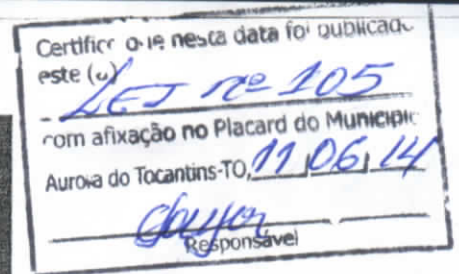 Certifico que nesta data foi publicado
este (a)
LEI nº 105
com afixação no Placard do Município
Aurora do Tocantins-TO, 11/06/14
Responsável